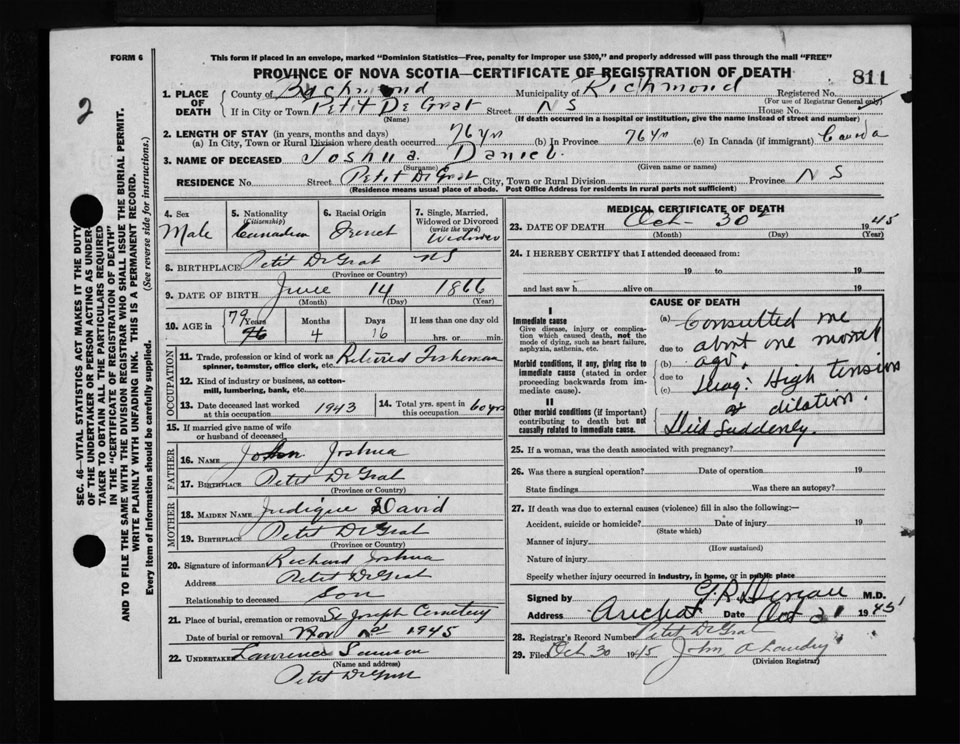 FORM 6
This form if placed in an envelope, marked "Dominion Statistics—Free, penalty for improper use $300," and properly addressed will pass through the mail "FREE"
PROVINCE OF NOVA SCOTIA—CERTIFICATE OF REGISTRATION OF DEATH
811
2
SEC. 46—VITAL STATISTICS ACT MAKES IT THE DUTY
OF THE UNDERTAKER OR PERSON ACTING AS UNDER-
TAKER TO OBTAIN ALL THE PARTICULARS REQUIRED
IN THE "CERTIFICATE OF REGISTRATION OF DEATH"
AND TO FILE THE SAME WITH THE DIVISION REGISTRAR WHO SHALL ISSUE THE BURIAL PERMIT.
WRITE PLAINLY WITH UNFADING INK. THIS IS A PERMANENT RECORD.
Every item of information should be carefully supplied. (See reverse side for instructions.)
1. PLACE OF DEATH
County of Richmond Municipality of Richmond Registered No.
(For use of Registrar General only)
If in City or Town Petit De Grat Street N S House No.
(Name) (If death occurred in a hospital or institution, give the name instead of street and number)
2. LENGTH OF STAY (in years, months and days)
(a) In City, Town or Rural Division where death occurred 76 yrs (b) In Province 76 yrs (c) In Canada (if immigrant) Canada
3. NAME OF DECEASED Joshua Daniel
(Surname) (Given name or names)
RESIDENCE No. Street Petit De Grat City, Town or Rural Division Province N S
(Residence means usual place of abode. Post Office Address for residents in rural parts not sufficient)
4. Sex
Male
5. Nationality
(Citizenship)
Canadian
6. Racial Origin
French
7. Single, Married,
Widowed or Divorced
(write the word)
Widower
8. BIRTHPLACE Petit De Grat N S
(Province or Country)
9. DATE OF BIRTH June 14 1866
(Month) (Day) (Year)
10. AGE in 79 Years 4 Months 16 Days If less than one day old
hrs. or min.
OCCUPATION
11. Trade, profession or kind of work as Retired Fisherman
spinner, teamster, office clerk, etc.
12. Kind of industry or business, as cotton-
mill, lumbering, bank, etc.
13. Date deceased last worked
at this occupation 1943
14. Total yrs. spent in
this occupation 60 yrs
15. If married give name of wife
or husband of deceased
FATHER
16. NAME John Joshua
17. BIRTHPLACE Petit De Grat
(Province or Country)
MOTHER
18. MAIDEN NAME Judique David
19. BIRTHPLACE Petit De Grat
(Province or Country)
20. Signature of informant Richard Joshua
Address Petit De Grat
Relationship to deceased Son
21. Place of burial, cremation or removal St Joseph Cemetery
Date of burial or removal Nov 1945
22. UNDERTAKER Lawrence Samson
(Name and address)
Petit De Grat
MEDICAL CERTIFICATE OF DEATH
23. DATE OF DEATH Oct 30 1945
(Month) (Day) (Year)
24. I HEREBY CERTIFY that I attended deceased from:
19 to 19
and last saw h alive on 19
CAUSE OF DEATH
I
Immediate cause
Give disease, injury or complica-
tion which caused death, not the
mode of dying, such as heart failure,
asphyxia, asthenia, etc.
Morbid conditions, if any, giving rise to
immediate cause (stated in order
proceeding backwards from im-
mediate cause).
II
Other morbid conditions (if important)
contributing to death but not
causally related to immediate cause.
(a) Consulted me
due to about one month
(b) ago.
due to
(c) Diag: High tension
dilation.
Died Suddenly.
25. If a woman, was the death associated with pregnancy?
26. Was there a surgical operation? Date of operation 19
State findings Was there an autopsy?
27. If death was due to external causes (violence) fill in also the following:—
Accident, suicide or homicide? Date of injury 19
(State which)
Manner of injury
(How sustained)
Nature of injury
Specify whether injury occurred in industry, in home, or in public place
Signed by G. R. Deveau M.D.
Address Arichat Date Oct 31 1945
28. Registrar's Record Number Petit De Grat
29. Filed Oct 30 1945 John A Landry
(Division Registrar)